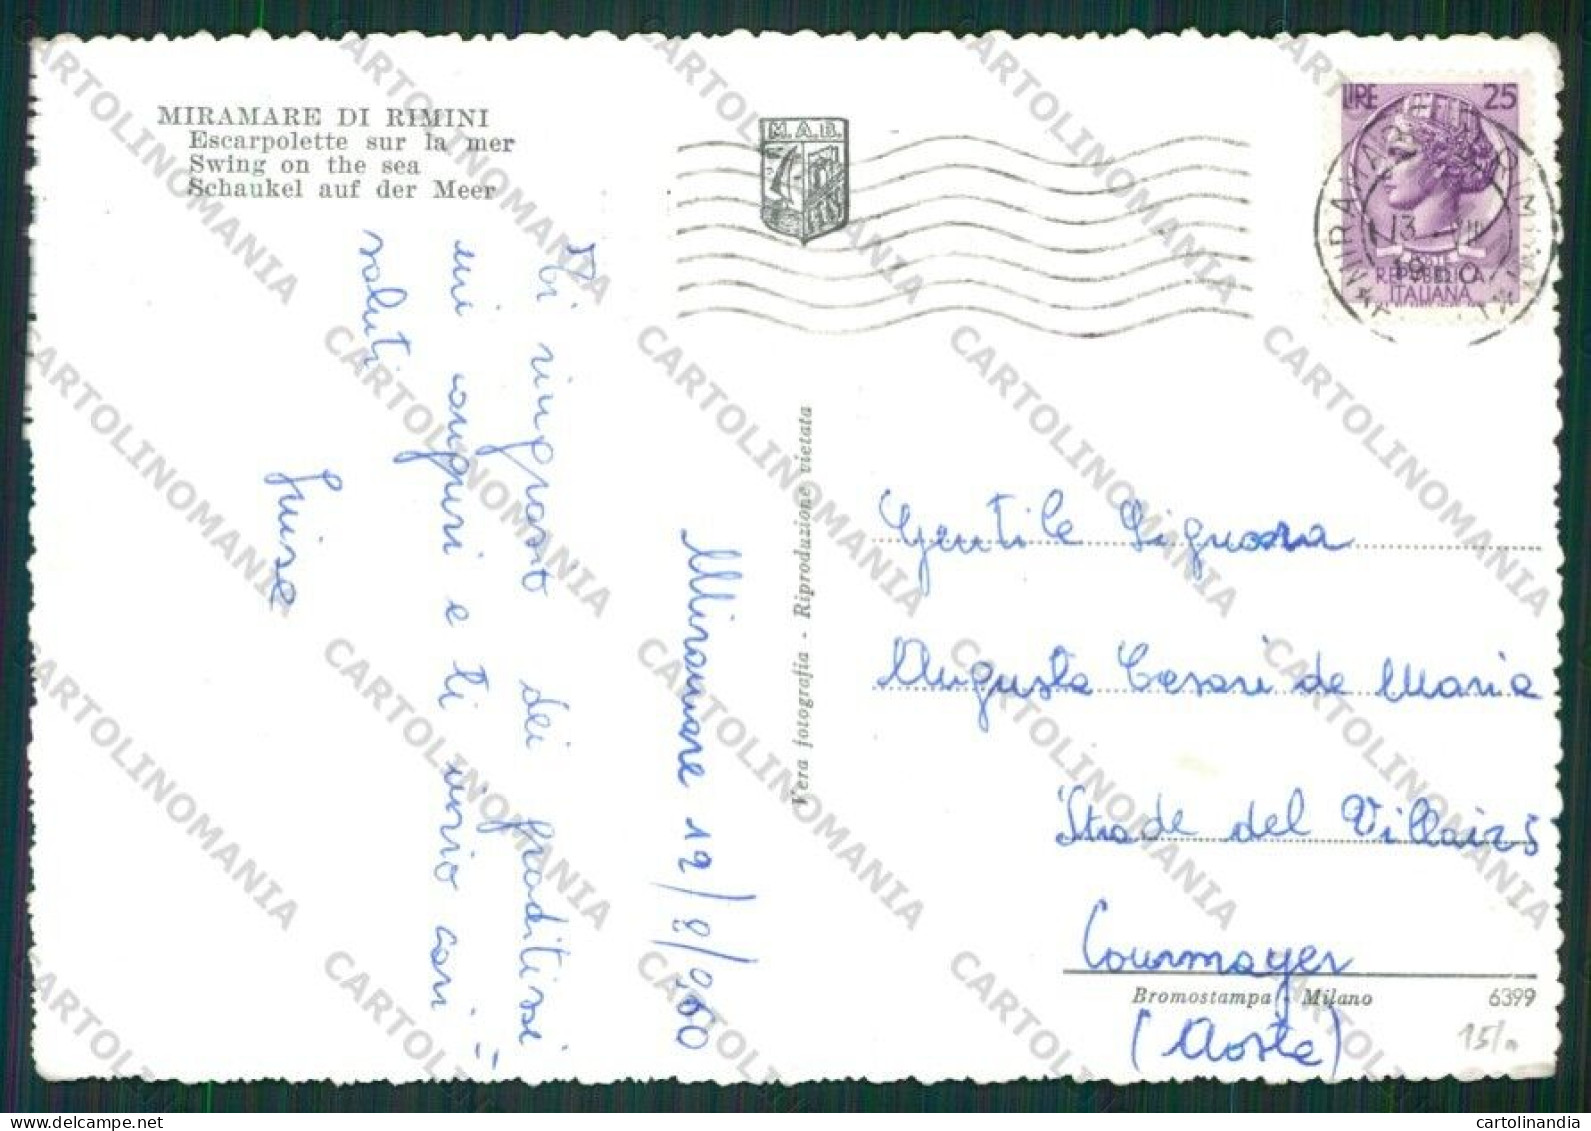 MIRAMARE DI RIMINI
Escarpolette sur la mer
Swing on the sea
Schaukel auf der Meer
M.A.B.
LIRE 25
REPUBBLICA
ITALIANA
MIRAMARE DI RIMINI
13 VIII
Ti ringrazio dei graditissi=
mi auguri e ti invio cari
saluti
Luisa
Miramare 12/8/960
Vera fotografia - Riproduzione vietata
Gentile Signora
Augusta Cesari de Maria
Strada del Villairs
Courmayer
(Aosta)
Bromostampa - Milano
6399
CARTOLINOMANIA
cartolinandia